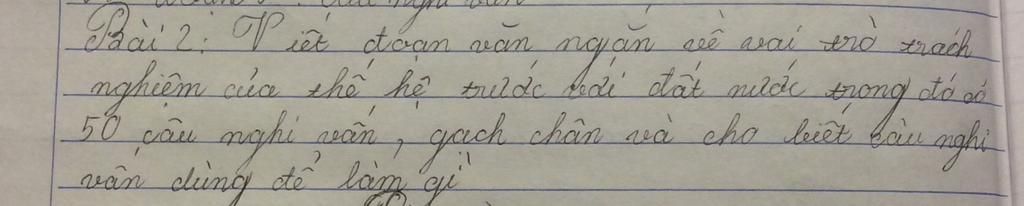 Bài 2: Viết đoạn văn ngắn về vai trò trách
nghiệm của thế hệ trước với đất nước trong đó có
50 câu nghi vấn, gạch chân và cho biết câu nghi
vấn dùng để làm gì